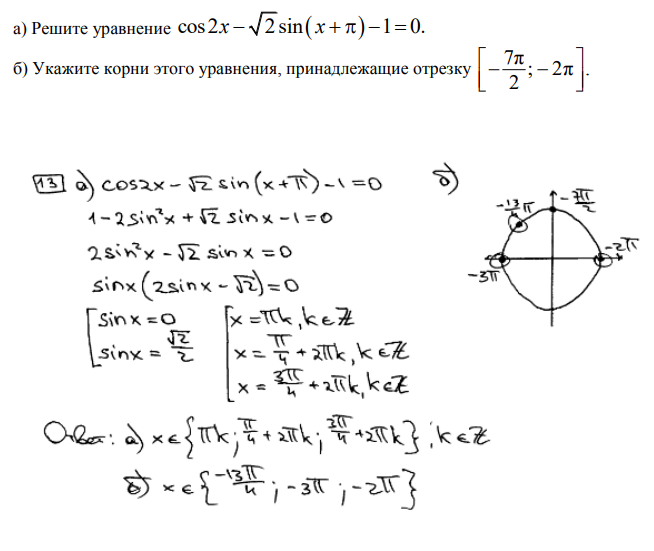 а) Решите уравнение cos2x − √2 sin(x + π) − 1 = 0.
б) Укажите корни этого уравнения, принадлежащие отрезку [−7π/2; −2π].
13 а) cos2x − √2 sin(x+π) − 1 = 0
1 − 2sin²x + √2 sinx − 1 = 0
2sin²x − √2 sinx = 0
sinx(2sinx − √2) = 0
[sinx = 0
sinx = √2/2
[x = πk, k∈ℤ
x = π/4 + 2πk, k∈ℤ
x = 3π/4 + 2πk, k∈ℤ
б)
−7π/2
−13/4 π
−2π
−3π
Ответ: а) x∈{πk; π/4 + 2πk; 3π/4 + 2πk}, k∈ℤ
б) x∈{−13π/4; −3π; −2π}